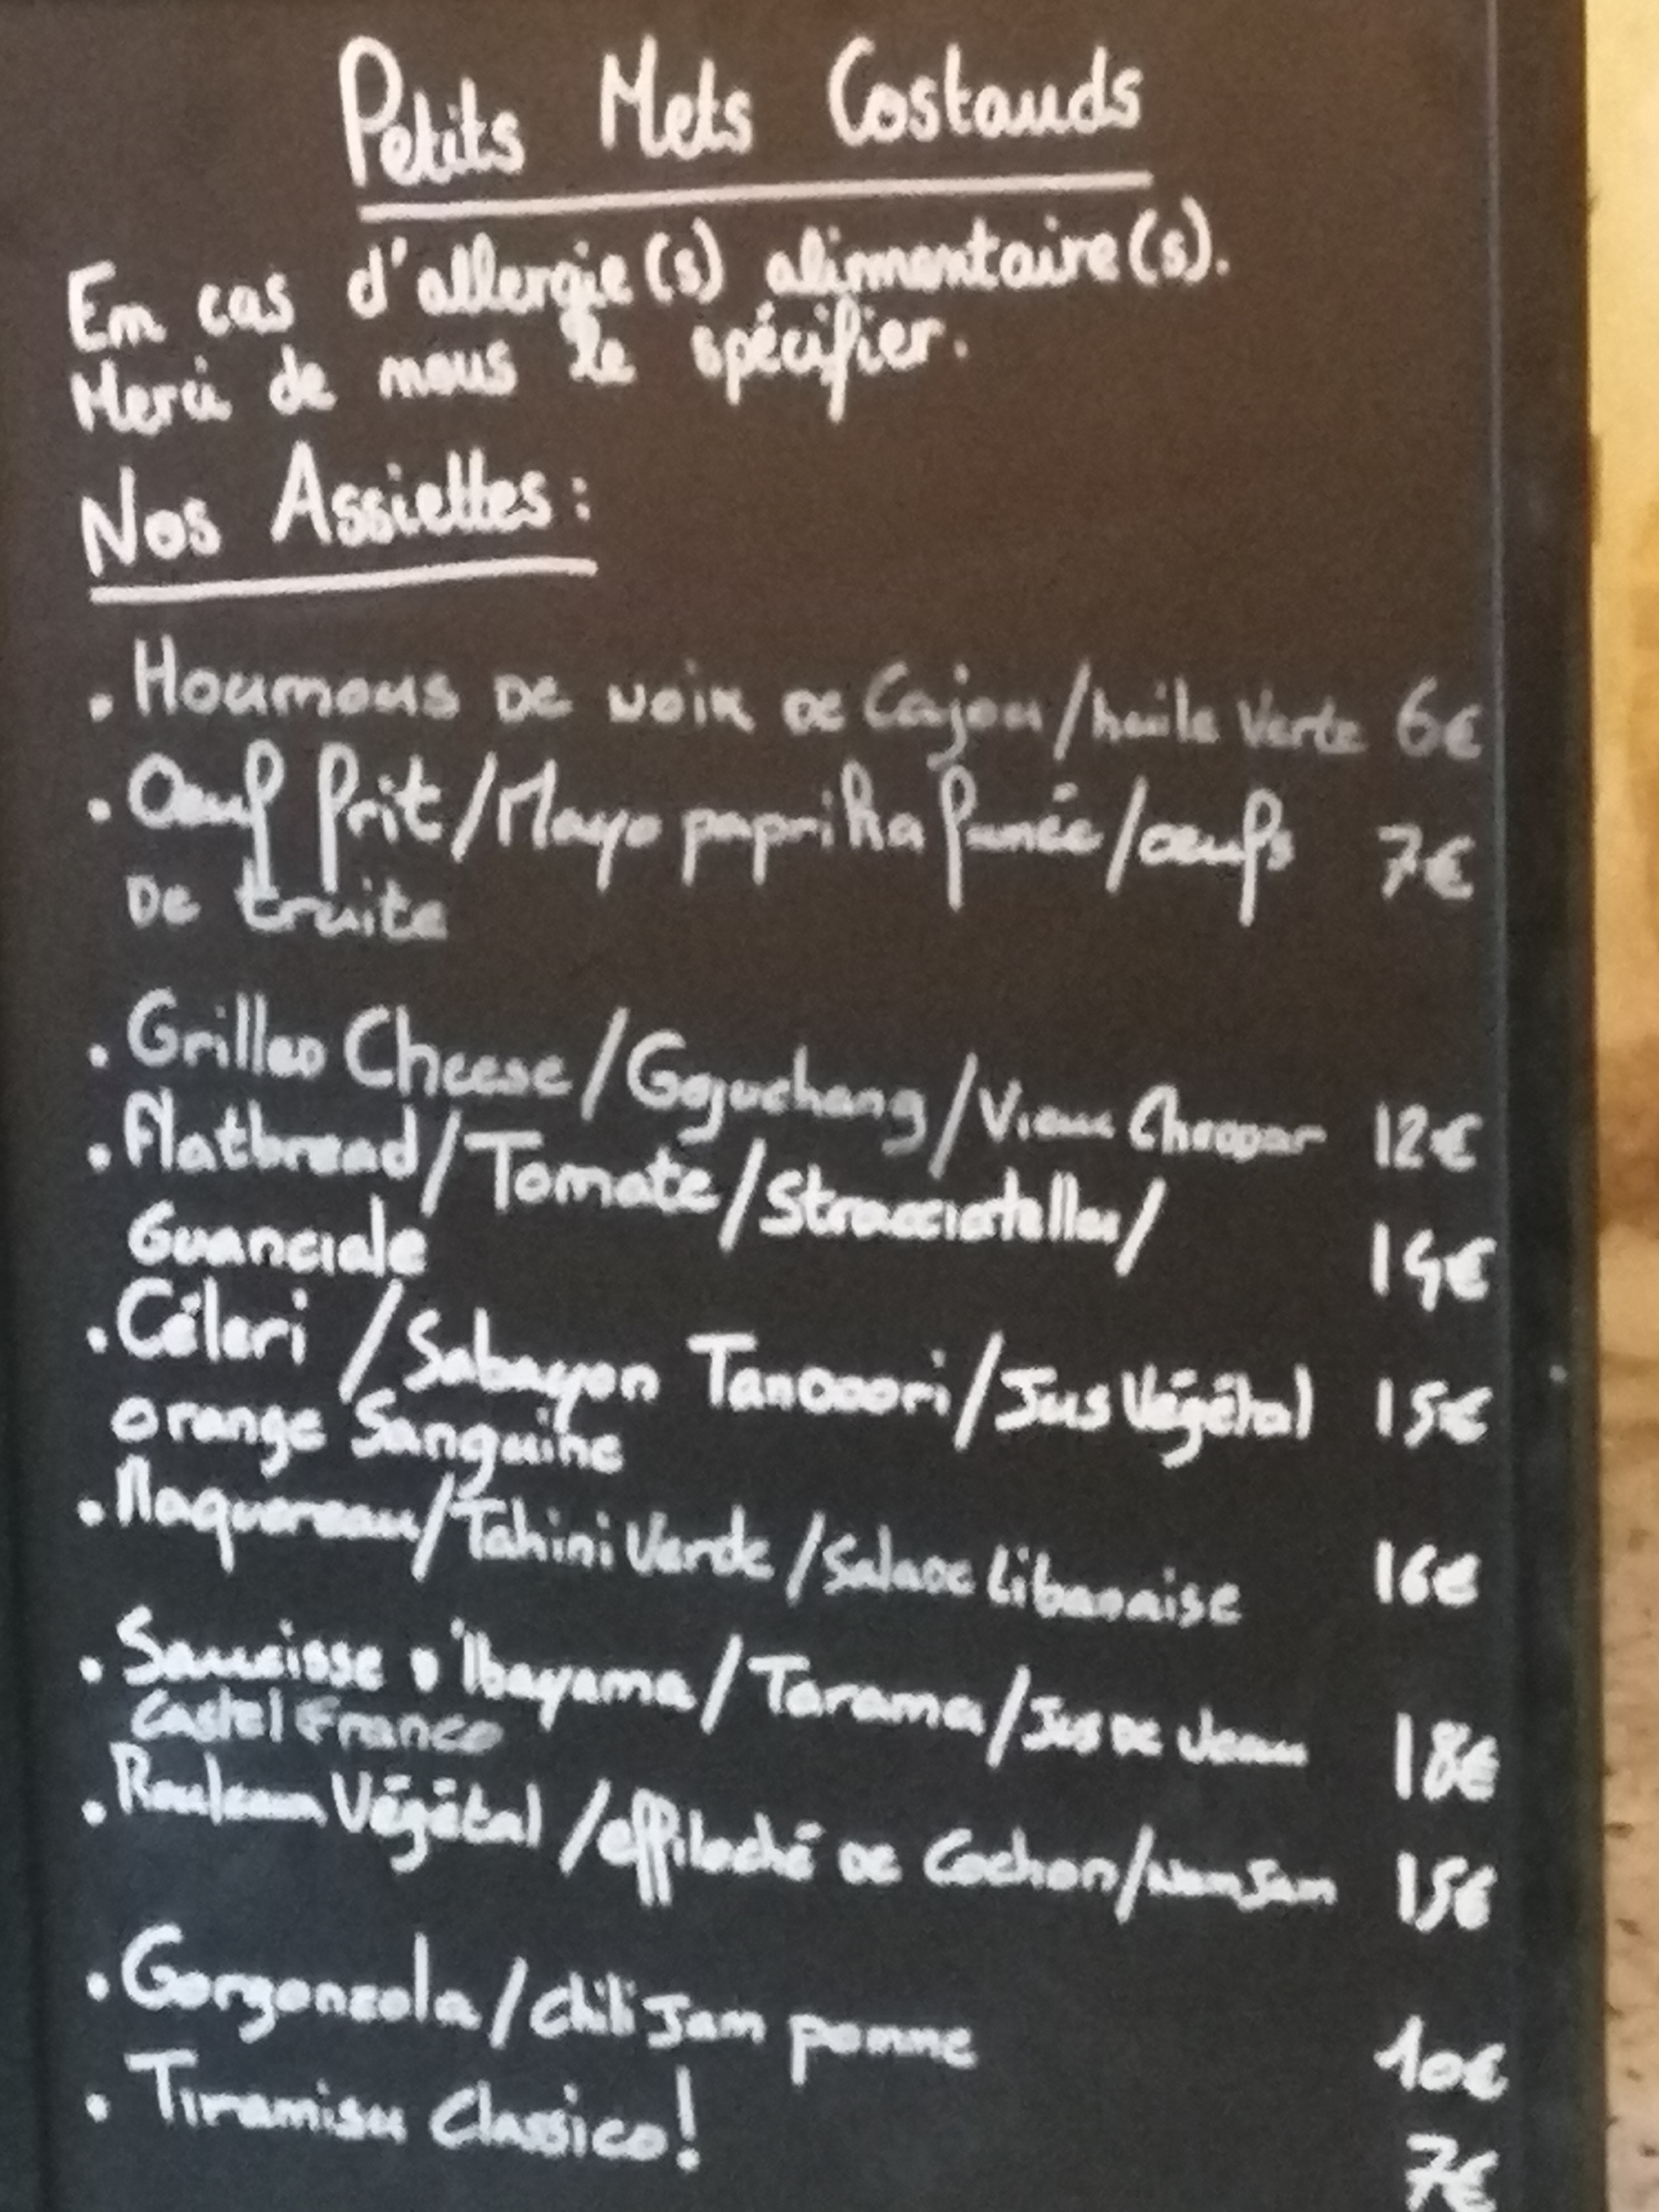 Petits Mets Costauds
En cas d'allergie(s) alimentaire(s).
Merci de nous le spécifier.
Nos Assiettes:
• Houmous DE Noix DE Cajou/huile Verte 6€
• Œuf frit/Mayo paprika fumée/œufs 7€
DE truite
• Grilled Cheese/Gojuchang/Vieux Cheddar 12€
• Flatbread/Tomate/Stracciatella/
Guanciale 14€
• Céleri/Sabayon Tandoori/Jus Végétal 15€
orange Sanguine
• Maquereau/Tahini Verde/Salade Libanaise 16€
• Saucisse D'Ibayama/Tarama/Jus DE Veau 18€
Castel Franco
• Rouleau Végétal/effiloché DE Cochon/Nam Jam 15€
• Gorgonzola/Chili Jam pomme 10€
• Tiramisu Classico! 7€